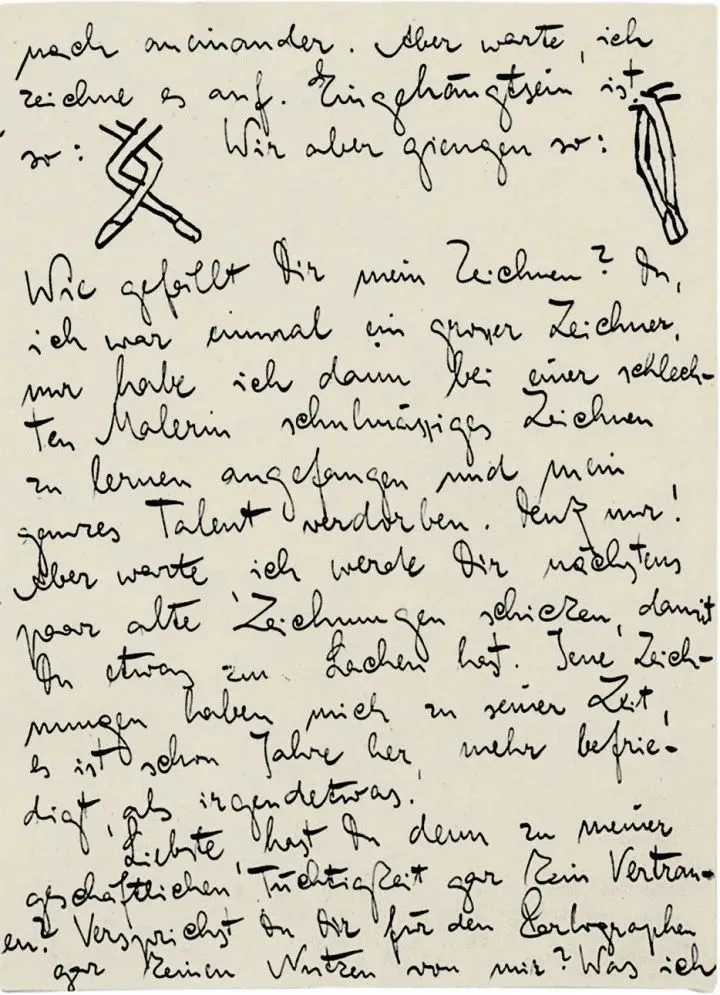 nach aneinander. Aber warte, ich
zeichne es auf. Eingehängtsein ist
so: Wir aber giengen so:
Wie gefällt Dir mein Zeichnen? Du,
ich war einmal ein grosser Zeichner,
nur habe ich dann bei einer schlech-
ten Malerin schulmässiges Zeichnen
zu lernen angefangen und mein
ganzes Talent verdorben. Denk nur!
Aber warte, ich werde Dir nächstens
paar alte Zeichnungen schicken, damit
Du etwas zum Lachen hast. Jene Zeich-
nungen haben mich zu seiner Zeit,
es ist schon Jahre her, mehr befrie-
digt, als irgendetwas.
Liebste, hast Du denn zu meiner
geschäftlichen Tüchtigkeit gar kein Vertrau-
en? Versprichst Du Dir für den Parlographen
gar keinen Nutzen von mir? Was ich